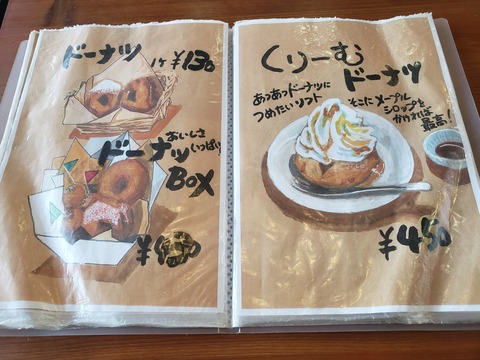 ドーナツ 1ケ ¥130
おいしさ
いっぱい
ドーナツ
BOX
くりーむ
ドーナツ
あつあつドーナツに
つめたいソフト
そこに メープル
シロップを
かければ
最高!
¥450